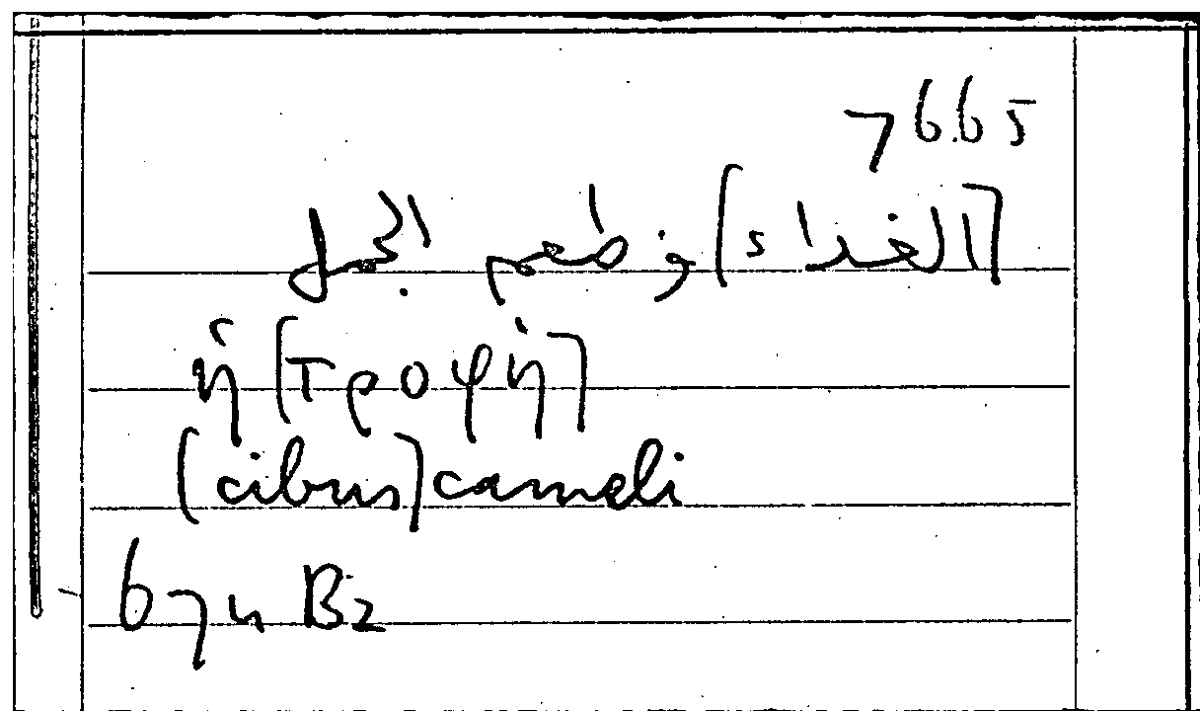 7665
[الغذاء] وطعم الجمل
ἡ [τροφὴ]
[cibus] cameli
67u B2